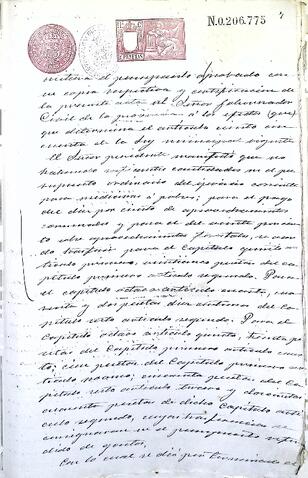 N.0.206.775
mitiera el presupuesto aprobado con
su copia respectiva y certificacion de
la presente acta al Señor Gobernador
Civil de la provincia a los efectos (que)
que determina el articulo ciento cin-
cuenta de la ley municipal vigente
El Señor presidente manifestó que no
habiendo suficientes cantidades en el pre-
supuesto ordinario del ejercicio corriente
para medicinas a pobres; para el pago
del diez por ciento de aprovechamientos
comunales y para el del veinte por cien-
to sobre aprovechamientos forestales, se acor-
do trasferir para el Capitulo quinto ar-
ticulo primero, veintinueve pesetas del ca-
pitulo primero articulo segundo. Para
el capitulo octavo articulo cuarto,
y dos pesetas diez centimos del Ca-
pitulo sexto articulo segundo. Para el
Capitulo octavo articulo quinto, treinta pe-
setas del Capitulo primero articulo cuar-
to; cien pesetas del Capitulo primero ar-
ticulo noveno; cincuenta pesetas del Ca-
pitulo sexto articulo tercero y doscientas
cuarenta pesetas de dicho Capitulo arti-
culo segundo, cuyas trasferencias se
consignaran en el presupuesto refun-
dido de gastos.
Con lo cual se dió por terminado el